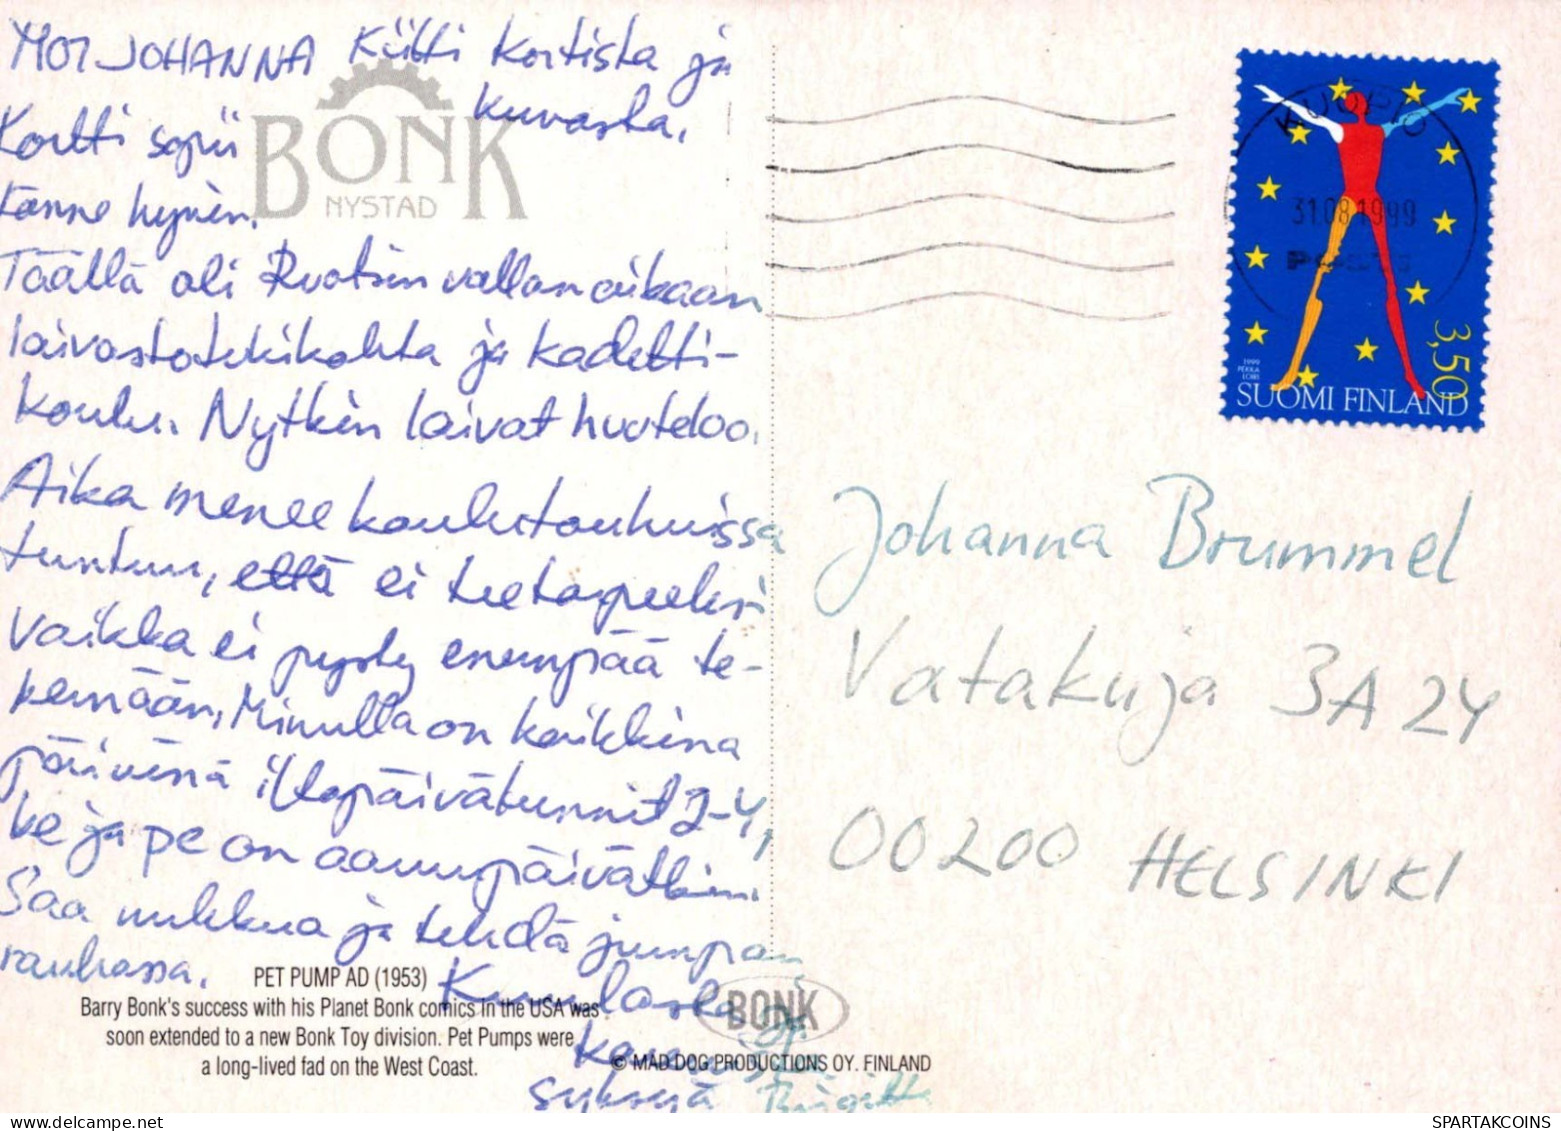 MOI JOHANNA Kiitti kortista ja
kuvasta.
Kortti sopii
tänne hyvin.
BONK
NYSTAD
Täällä oli Ruotsin vallan aikaan
laivastotukikohta ja kadetti-
koulu. Nytkin laivat huuteloo.
Aika menee koulutouhuissa
tuntuu, että ei tietarpeeksi
vaikka ei pysty enempää te-
kemään. Minulla on kaikkina
päivinä iltapäivätunnit 2-4,
ke ja pe on aamupäivätkin.
Saa nukkua ja tehdä jumpan
rauhassa.
Kuullaan
syksyä
Birgitta
PET PUMP AD (1953)
Barry Bonk's success with his Planet Bonk comics in the USA was
soon extended to a new Bonk Toy division. Pet Pumps were
a long-lived fad on the West Coast.
BONK
© MAD DOG PRODUCTIONS OY. FINLAND
KUOPIO
31.08.1999
3,50
1999
PEKKA
LOIRI
SUOMI FINLAND
Johanna Brummel
Vatakuja 3A 24
00200 HELSINKI
SPARTAKCOINS